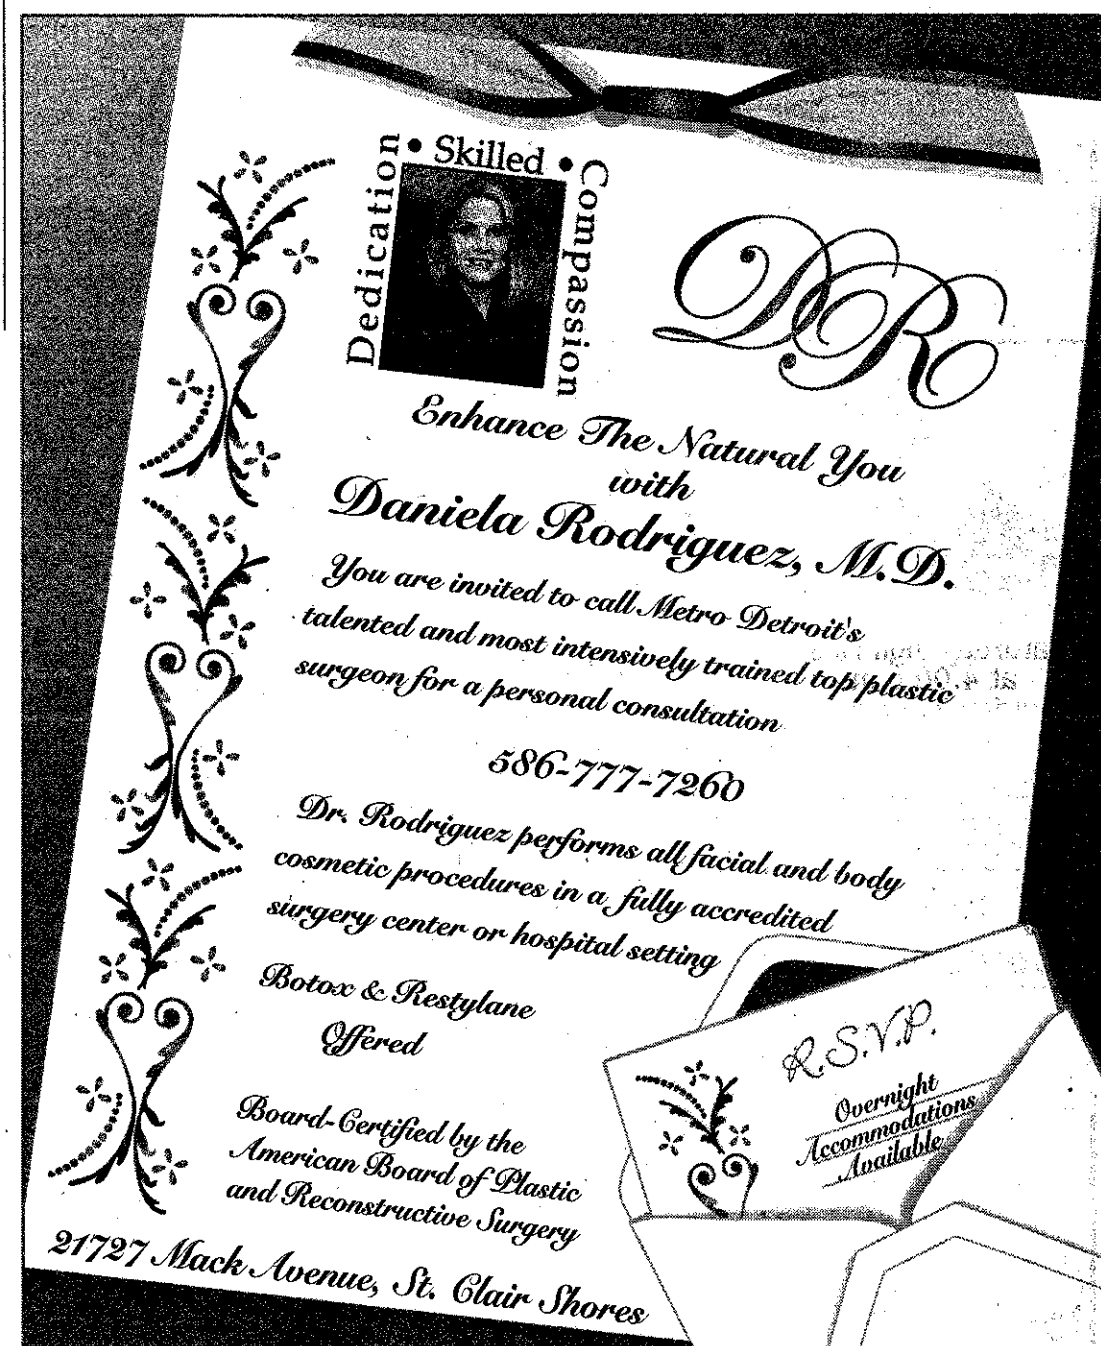 Dedication • Skilled • Compassion
DR
Enhance The Natural You
with
Daniela Rodriguez, M.D.
You are invited to call Metro Detroit's
talented and most intensively trained top plastic
surgeon for a personal consultation
586-777-7260
Dr. Rodriguez performs all facial and body
cosmetic procedures in a fully accredited
surgery center or hospital setting
Botox & Restylane
Offered
Board-Certified by the
American Board of Plastic
and Reconstructive Surgery
21727 Mack Avenue, St. Clair Shores
R.S.V.P.
Overnight
Accommodations
Available